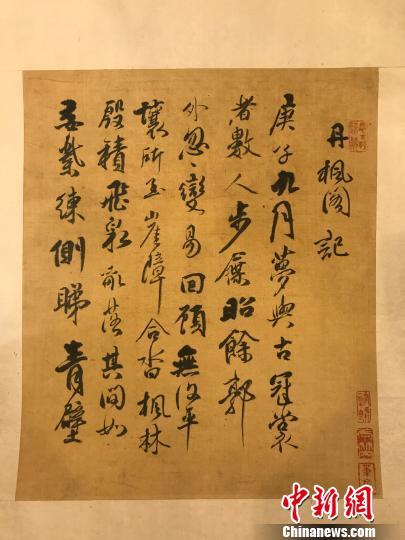 丹楓閣記
庚子九月夢與古冠裳
者數人步屧昭餘郭
外忽〻變易回顧無復平
壤所至崖嶂合沓楓林
殷積飛泉落其間如
練側睇青壁
中新網
Chinanews.com